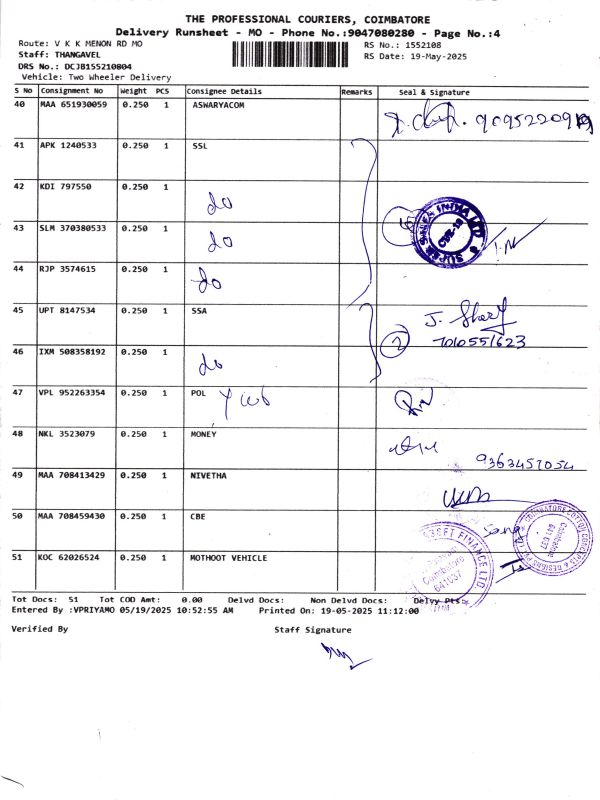 THE PROFESSIONAL COURIERS, COIMBATORE
Delivery Runsheet - MO - Phone No.:9047080280 - Page No.:4
Route: V K K MENON RD MO
RS No.: 1552108
Staff: THANGAVEL
RS Date: 19-May-2025
DRS No.: DCJB155210804
Vehicle: Two Wheeler Delivery
S No Consignment No Weight PCS Consignee Details Remarks Seal & Signature
40 MAA 651930059 0.250 1 ASWARYACOM
41 APK 1240533 0.250 1 SSL
42 KDI 797550 0.250 1 do
43 SLM 370380533 0.250 1 do
44 RJP 3574615 0.250 1 do
45 UPT 8147534 0.250 1 SSA 2 7010551623
46 IXM 508358192 0.250 1 do
47 VPL 952263354 0.250 1 POL
48 NKL 3523079 0.250 1 MONEY 9363457054
49 MAA 708413429 0.250 1 NIVETHA
50 MAA 708459430 0.250 1 CBE
51 KOC 62026524 0.250 1 MOTHOOT VEHICLE
Tot Docs: 51 Tot COD Amt: 0.00 Delvd Docs: Non Delvd Docs: Delvy Pts:
Entered By :VPRIYAMO 05/19/2025 10:52:55 AM Printed On: 19-05-2025 11:12:00
Verified By Staff Signature